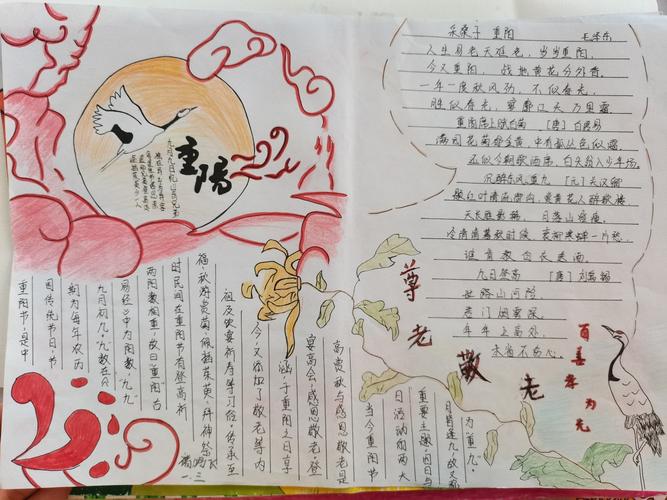 重陽
九月九日忆山东兄弟
独在异乡为异客
每逢佳节倍思亲
遥知兄弟登高处
遍插茱萸少一人
采桑子 重阳 毛泽东
人生易老天难老，岁岁重阳，
今又重阳，战地黄花分外香。
一年一度秋风劲，不似春光，
胜似春光，寥廓江天万里霜。
重阳席上赋白菊 [唐] 白居易
满园花菊郁金黄，中有孤丛色似霜。
还似今朝歌酒席，白头翁入少年场。
沉醉东风·重九 [元] 关汉卿
题红叶清流御沟，赏黄花人醉歌楼。
天长雁影稀，日落山容瘦。
冷清清暮秋时候，衰柳寒蝉一片愁，
谁肯教白衣送酒。
九日登高 [唐] 刘禹锡
世路山河险，
君门烟雾深。
年年上高处，
未省不伤心。
重阳节，是中
国传统节日，节
期为每年农历
九月初九。“九”数在《
易经》中为阳数，“九九”
两阳数相重，故曰“重阳”古
时民间在重阳节有登高祈
福、秋游赏菊、佩插茱萸、拜神祭
祖及饮宴祈寿等习俗。传承至
今又添加了敬老等内
涵，于重阳之日享
宴高会，感恩敬老。登
高赏秋与感恩敬老是
当今重阳节
日活动的两大
重要主题。因日与
月皆逢九，故又称
为“重九”。
尊老敬老
百善孝为先